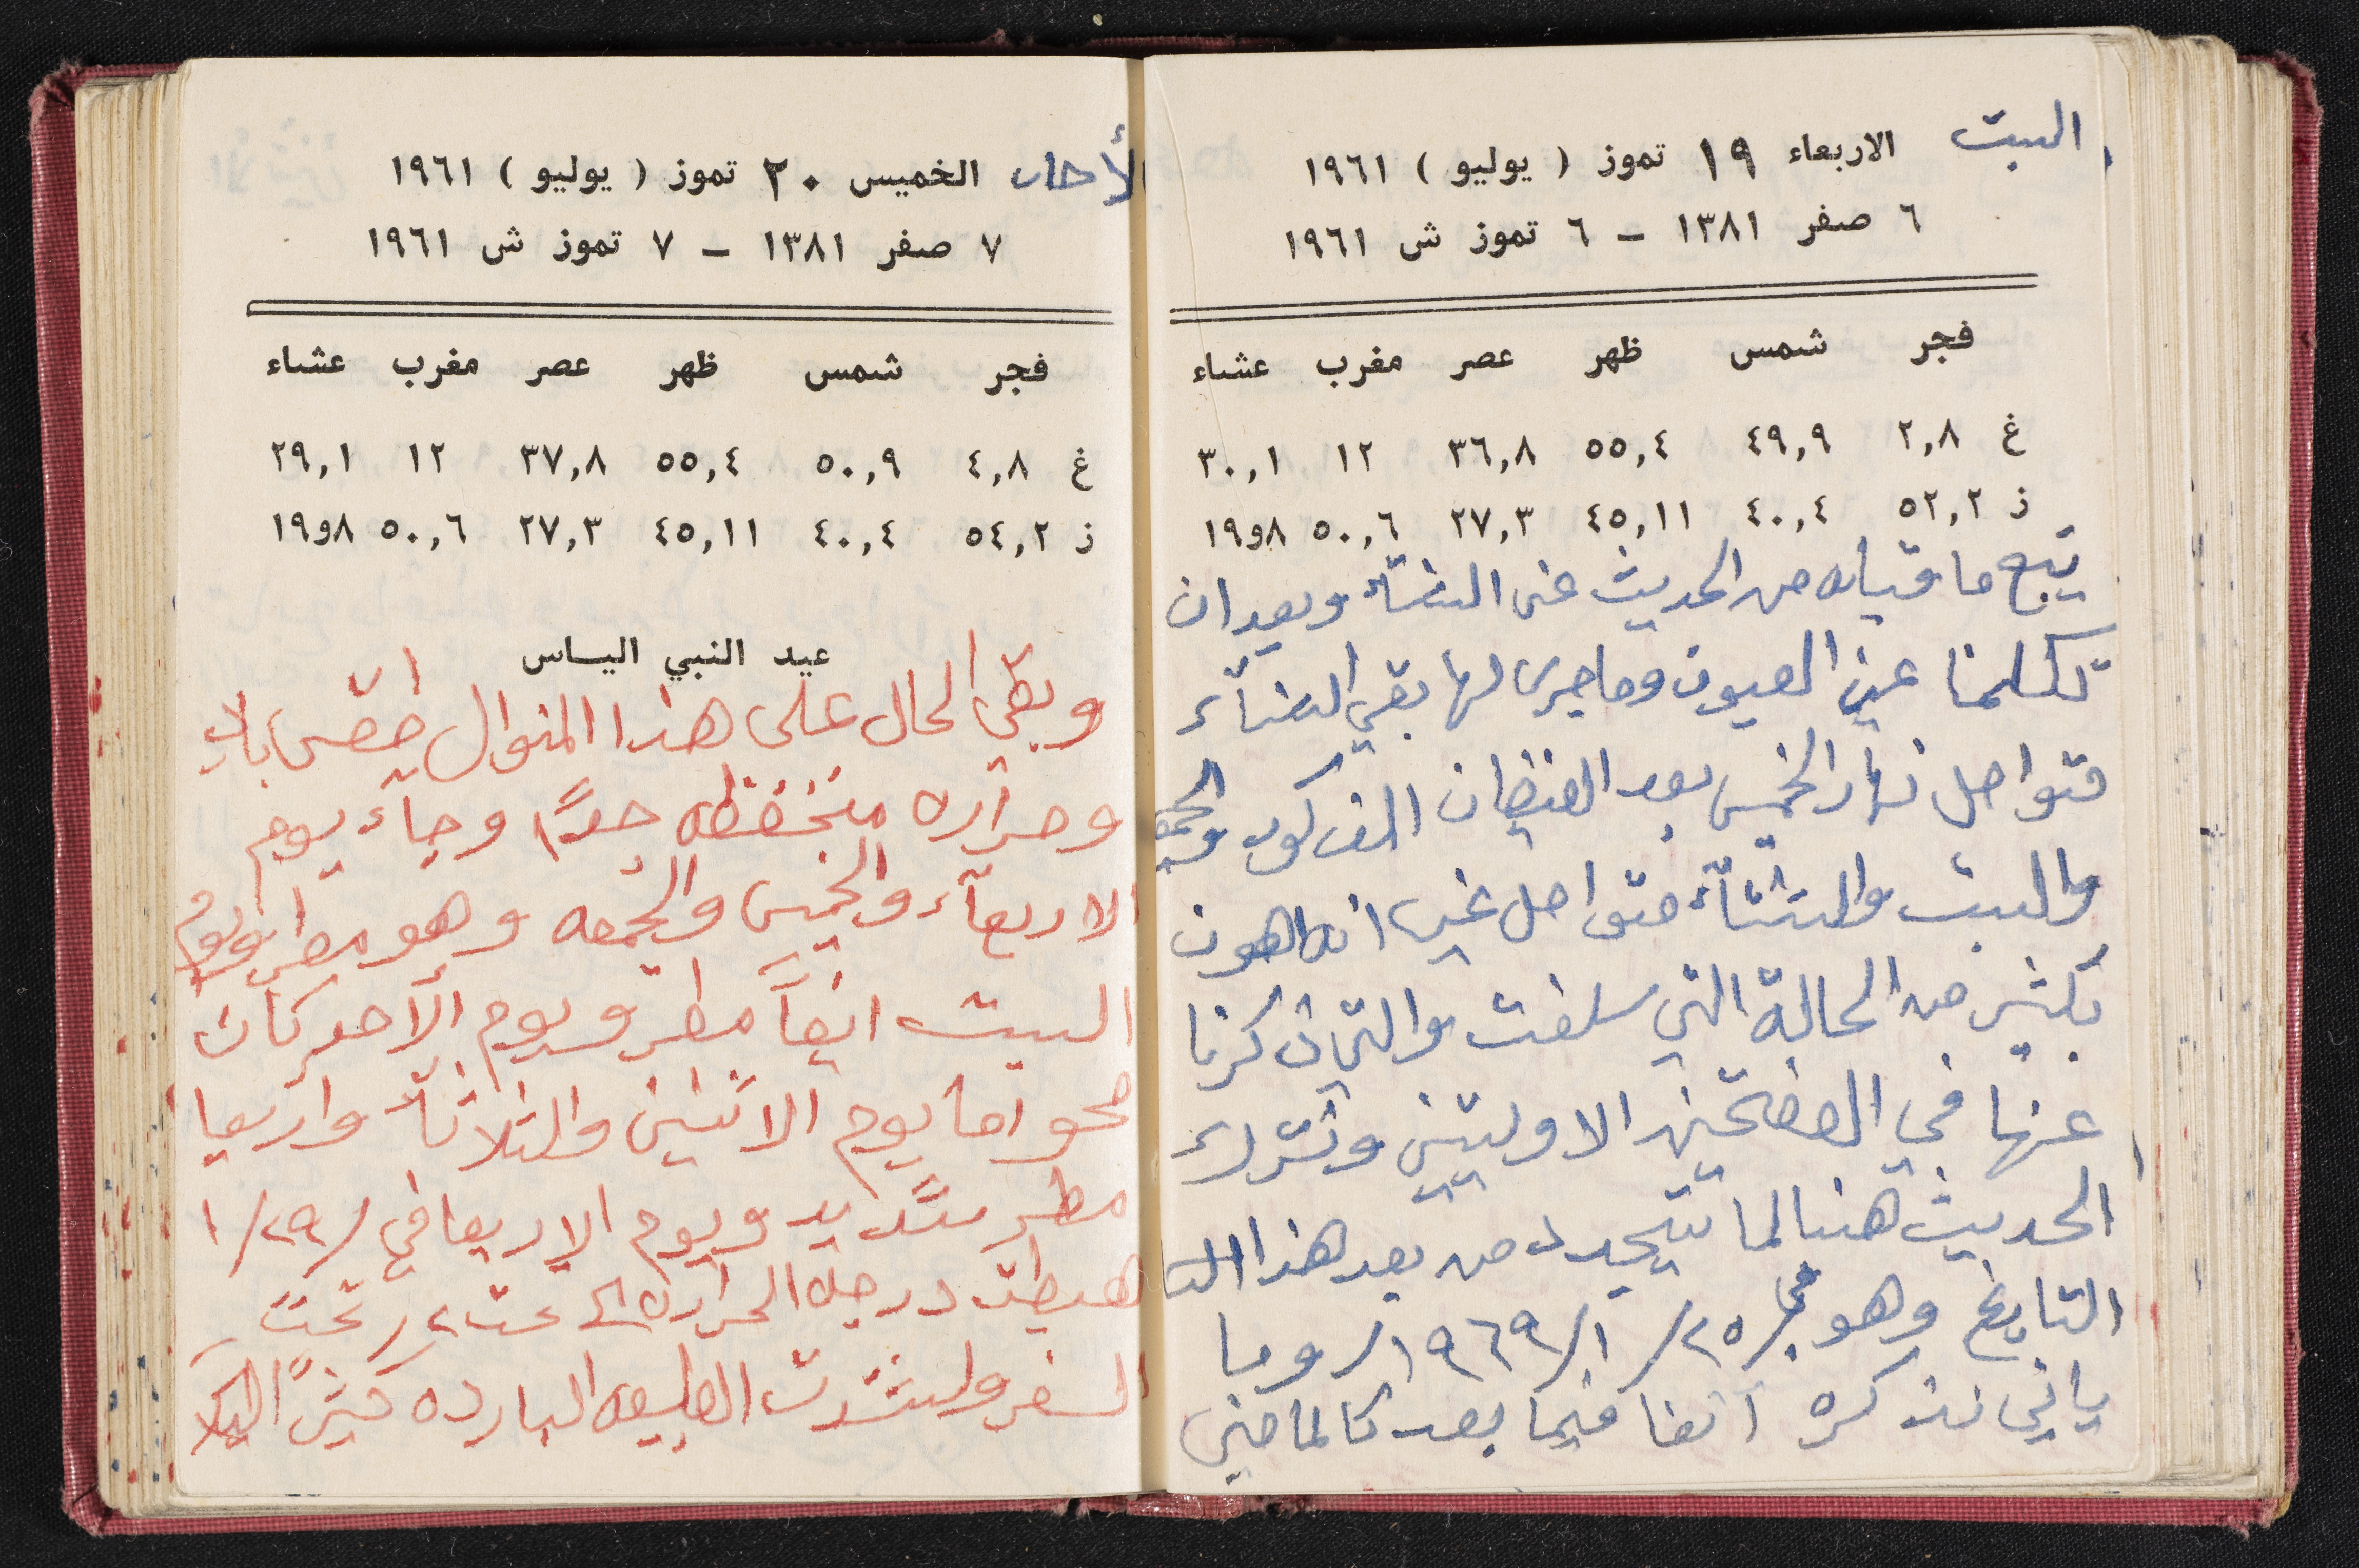 السبت الاربعاء ١٩ تموز ( يوليو ) ١٩٦١
٦ صفر ١٣٨١ – ٦ تموز ش ١٩٦١
فجر شمس ظهر عصر مغرب عشاء
غ ٢,٨ ٤٩,٩ ٥٥,٤ ٣٦,٨ ١٢ ٣٠,١
ز ٥٢,٢ ٤٠,٤ ٤٥,١١ ٢٧,٣ ٥٠,٦ ٨و١٩
يتبع ما قبله من الحديث عن الشتآء وبعد ان
تكلمنا عن العيون وما جرى لها بقي الشتآء
متواصل نهار الخميس بعد الفيضان المذكور والجمعه
والسبت والشتآء متواصل غير انه اهون
بكثير من الحالة التي سلفت والتي ذكرنا
عنها في الصفحتين الاوليتين ونترك
الحديث هنا لما يتجدد من بعد هذا التا
التاريخ وهو في ٢٥/ ١/ ١٩٦٩/ وما
ياتي نذكره آنفا فيما بعد كالماضي
الأحد الخميس ٢٠ تموز ( يوليو ) ١٩٦١
٧ صفر ١٣٨١ – ٧ تموز ش ١٩٦١
فجر شمس ظهر عصر مغرب عشاء
غ ٤,٨ ٥٠,٩ ٥٥,٤ ٣٧,٨ ١٢ ٢٩,١
ز ٥٤,٢ ٤٠,٤ ٤٥,١١ ٢٧,٣ ٥٠,٦ ٨و١٩
عيد النبي الياس
وبقي الحال على هذا المنوال طقس بارد
وحراره منخفظه جداً وجآء يوم
الاربعآء والخميس والجمعه وهو مطر ويوم
السبت ايضاً مطر ويوم الآحد كان
صحو اما يوم الاثنين والثلاثآ واربعا
مطر شديد ويوم الاربعا في /٢٩/ ١
هبطت درجة الحراره الى تحت
السفر واشتدت الطبيعه البارده كثيراً